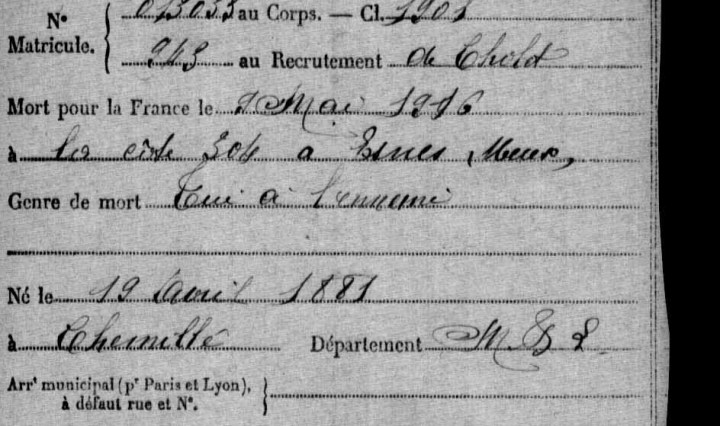 Nº Matricule. { 013033 au Corps. — Cl. 1901
943 au Recrutement de Cholet
Mort pour la France le 9 Mai 1916
à la côte 304 à Esnes (Meuse)
Genre de mort Tué à l'ennemi
Né le 19 Avril 1881
à Chemillé Département M & L
Arrt municipal (pr Paris et Lyon), à défaut rue et Nº. }